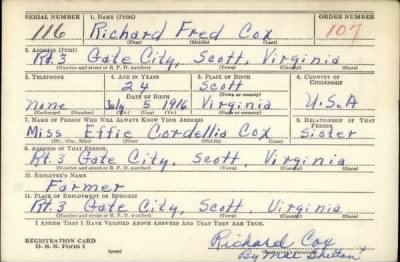 SERIAL NUMBER 1. NAME (Print) ORDER NUMBER
116 Richard Fred Cox 107
(First) (Middle) (Last)
2. ADDRESS (Print)
Rt. 3 Gate City, Scott, Virginia
(Number and street or R. F. D. number) (Town) (County) (State)
3. TELEPHONE 4. AGE IN YEARS 5. PLACE OF BIRTH 6. COUNTRY OF CITIZENSHIP
24 Scott
(Town or county)
DATE OF BIRTH
None July 5 1916 Virginia U.S.A
(Exchange) (Number) (Mo.) (Day) (Yr.) (State or country)
7. NAME OF PERSON WHO WILL ALWAYS KNOW YOUR ADDRESS 8. RELATIONSHIP OF THAT PERSON
Miss Effie Cordellia Cox Sister
(Mr., Mrs., Miss) (First) (Middle) (Last)
9. ADDRESS OF THAT PERSON
Rt. 3 Gate City, Scott, Virginia
(Number and street or R. F. D. number) (Town) (County) (State)
10. EMPLOYER'S NAME
Farmer
11. PLACE OF EMPLOYMENT OR BUSINESS
Rt. 3 Gate City, Scott, Virginia
(Number and street or R. F. D. number) (Town) (County) (State)
I AFFIRM THAT I HAVE VERIFIED ABOVE ANSWERS AND THAT THEY ARE TRUE.
REGISTRATION CARD
D. S. S. Form 1
Richard Cox
By